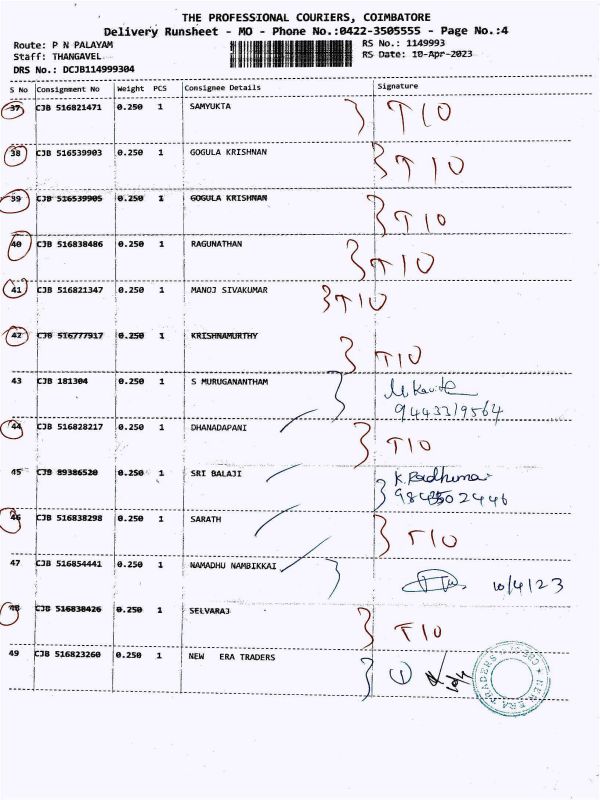 THE PROFESSIONAL COURIERS, COIMBATORE
Delivery Runsheet - MO - Phone No.:0422-3505555 - Page No.:4
Route: P N PALAYAM
RS No.: 1149993
Staff: THANGAVEL
RS Date: 10-Apr-2023
DRS No.: DCJB114999304
S No Consignment No Weight PCS Consignee Details Signature
37 CJB 516821471 0.250 1 SAMYUKTA T10
38 CJB 516539903 0.250 1 GOGULA KRISHNAN T10
39 CJB 516539905 0.250 1 GOGULA KRISHNAN T10
40 CJB 516838486 0.250 1 RAGUNATHAN T10
41 CJB 516821347 0.250 1 MANOJ SIVAKUMAR T10
42 CJB 516777917 0.250 1 KRISHNAMURTHY T10
43 CJB 181304 0.250 1 S MURUGANANTHAM
9443319564
44 CJB 516828217 0.250 1 DHANADAPANI T10
45 CJB 89386520 0.250 1 SRI BALAJI
46 CJB 516838298 0.250 1 SARATH T10
47 CJB 516854441 0.250 1 NAMADHU NAMBIKKAI 10/4/23
48 CJB 516838426 0.250 1 SELVARAJ T10
49 CJB 516823260 0.250 1 NEW ERA TRADERS 1 10/4
NEW ERA TRADERS